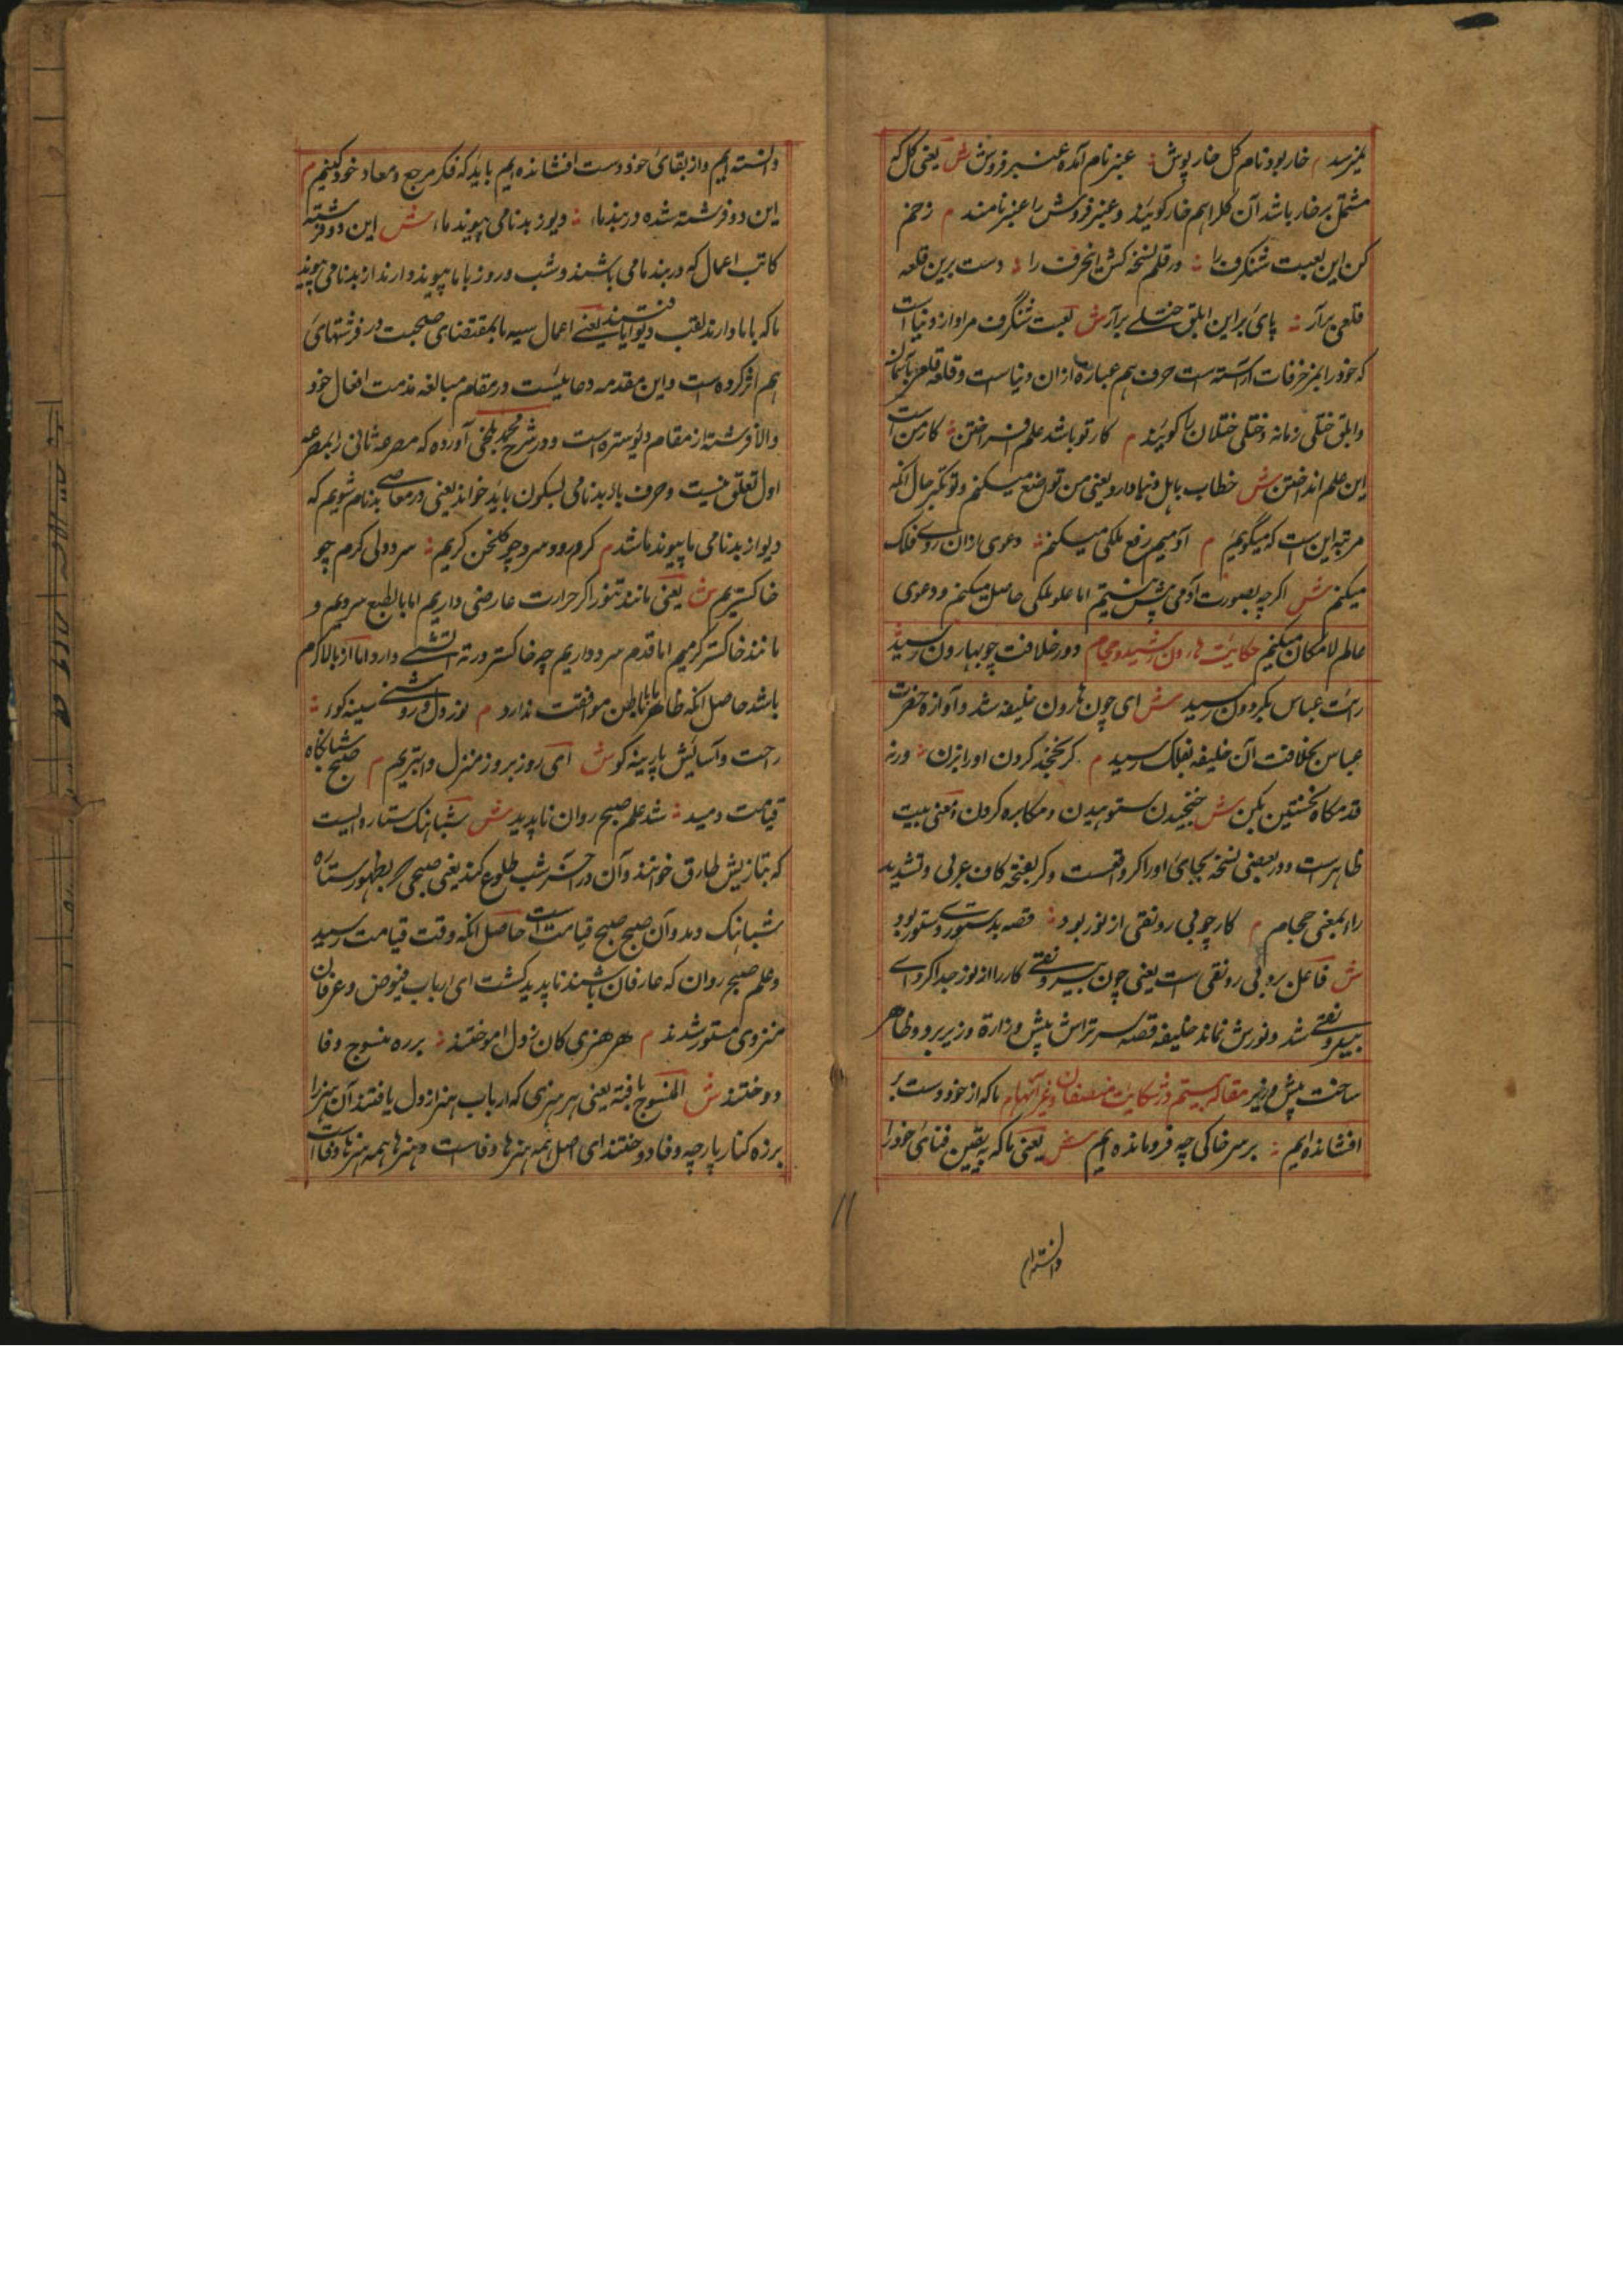 خار بود نام گل خار پوش عنبر نام آمده عنبر فروش ش یعنی گل که
مشتمل بر خار باشد آن گل را هم خار گویند و عنبر فروش را عنبر نامند م زخم
کن این لعبت شنگرف را در قلم نسخه کش این حرف را دست برین قلعه
قلعی برآر پای براین ابلق ختلی برآر ش لعبت شنگرف مراد از دنیا است
که خود را بمزخرفات آراسته است حرف هم عبارة ازان دنیا است و قلعه قلعی آسمان
وابلق ختلی زمانه و ختلی ختلان را گویند م کار تو باشد علم افراختن کار من است
این علم انداختن ش خطاب باهل دنیا دارد یعنی من تواضع میکنم و تو تکبر حال آنکه
مرتبه این است که میگویم م آدمیم رفع ملکی میکنم دعوی ازان روی فلک
میکنم ش اگرچه بصورت آدمی پیش نیستم اما علو ملکی حاصل میکنم و دعوی
عالم لامکان میکنم حکایت هارون رشید و حجام دور خلافت چو بهارون رسید
رایت عباس بگردون رسید ش ای چون هارون خلیفه شد و آوازه حضرت
عباس بخلافت آن خلیفه بفلک رسید م گر بخجد گردن او را بزن ورنه
قدمگاه نخستین بکن ش خجیدن ستوهیدن و مکابره کردن و معنی بیت
ظاهر است و در بعضی نسخه بجای او را گر واقعست و گر بفتحه کاف عربی و تشدید
را بمعنی حجام م کار چو بی رونقی از نور برد قصه بدستوری دستور برد
ش فاعل برد بی رونقی است یعنی چون بی رونقی کار را از نور جدا کرد ای
بیرونقی شد و نورش نماند خلیفه قصه سرتراش پیش وزارة وزیر برد و ظاهر
ساخت پیش وزیر مقاله بیستم در شکایت منصفان و غیر آنها م ما که از خود دست بر
افشانده ایم بر سر خاکی چه فرومانده ایم ش یعنی ما که به یقین فنای خود را
دانسته ایم
دانسته ایم و از بقای خود دست افشانده ایم باید که فکر مرجع و معاد خود کنیم م
این دو فرشته شده در بند ما دیو ز بدنامی پیوند ما ش این دو فرشته
کاتب اعمال که در بند ما می باشند و شب و روز با ما پیوند دارند از بدنامی پیوند
ما که با ما دارند لقب دیو یافتند یعنی اعمال سیه ما بمقتضای صحبت در فرشتهای
هم اثر کرده است و این مقدمه دعائیست در مقام مبالغه مذمت افعال خود
والا فرشته از مقام دیو ستره است و در شرح محمد بلخی آورده که مصرعه ثانی را بمصرعه
اول تعلق نیست و حرف باد بدنامی بسکون باید خواند یعنی در معاصی بدنام شویم که
دیو از بدنامی ما پیوند ما شد م گرم رو و سرد چو گلخن گریم سرد دلی گرم چو
خاکستریم ش یعنی مانند تنور اگر حرارت عارضی داریم اما بالطبع سردیم و
مانند خاکستر گرمیم اما قدم سرد داریم چه خاکستر در ته آتشی دارد اما از بالا گرم
باشد حاصل آنکه ظاهر ما با باطن موافقت ندارد م نور دل و روشنی سینه کو
راحت و آسایش پارینه کو ش ای روز بروز منزل وابتریم م صبح شباهنگ
قیامت دمید شد علم صبح روان ناپدید ش شباهنگ ستاره ایست
که بتازیش طارق خوانند و آن در آخر شب طلوع کند یعنی صبحی که بظهور ستاره
شباهنگ دمد و آن صبح صبح قیامت است حاصل آنکه وقت قیامت رسید
و علم صبح روان که عارفان باشند ناپدید گشت ای ارباب فیوض و عرفان
منزوی مستور شدند م هر هنری کان ز دل آموختند بر زه منسوج وفا
دوختند ش المنسوج بافته یعنی هر هنری که ارباب هنر از دل یافتند آن هنر را
بر زه کنار پارچه وفا دوختند ای اصل همه هنرها وفاست و هنرها همه هنرها وفا است